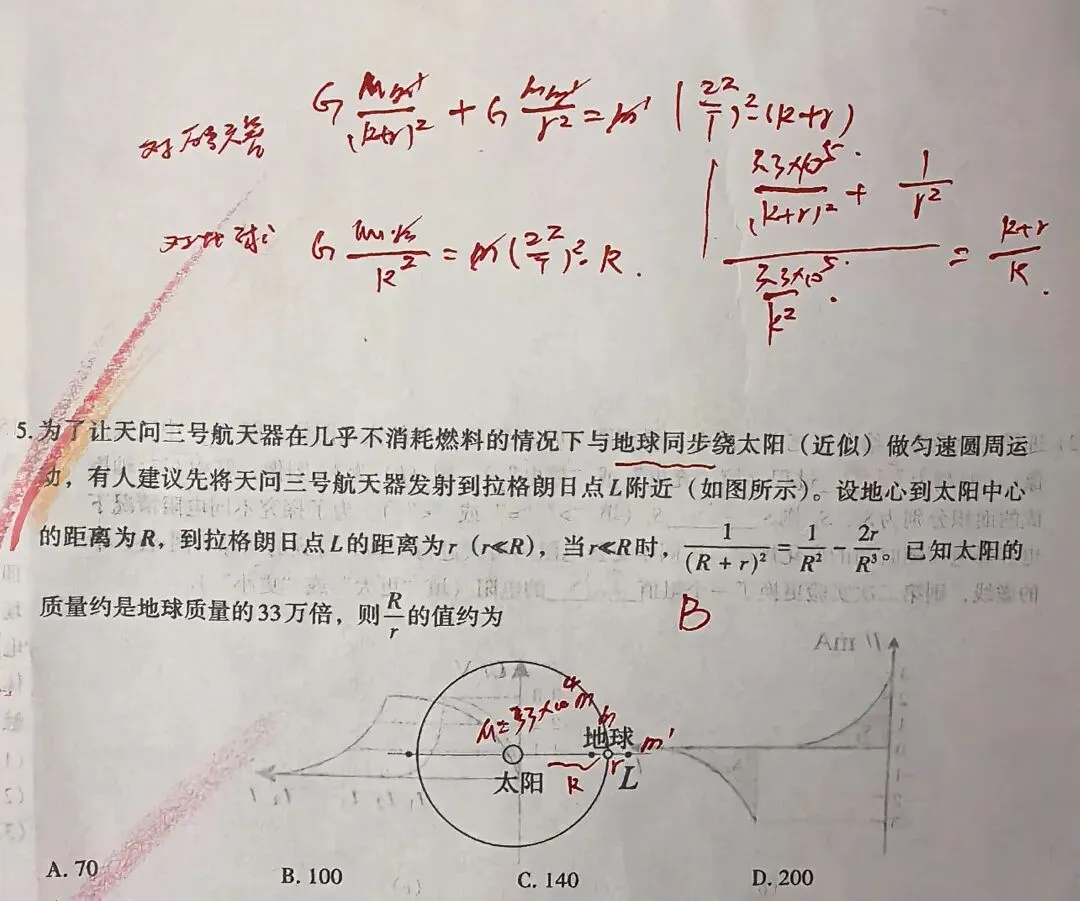 对航天器 G Mm'/(R+r)² + G mm'/r² = m' (2π/T)²·(R+r)
对地球: G Mm/R² = m(2π/T)²·R.
(3.3×10⁵/(R+r)² + 1/r²)/(3.3×10⁵/R²) = (R+r)/R.
5.为了让天问三号航天器在几乎不消耗燃料的情况下与地球同步绕太阳（近似）做匀速圆周运
动，有人建议先将天问三号航天器发射到拉格朗日点L附近（如图所示）。设地心到太阳中心
的距离为R，到拉格朗日点L的距离为r（r≪R），当r≪R时，1/(R+r)²=1/R²-2r/R³。已知太阳的
质量约是地球质量的33万倍，则R/r的值约为
B
I/mA
M=33×10⁴m
m
地球 m'
太阳 R r L
A. 70 B. 100 C. 140 D. 200